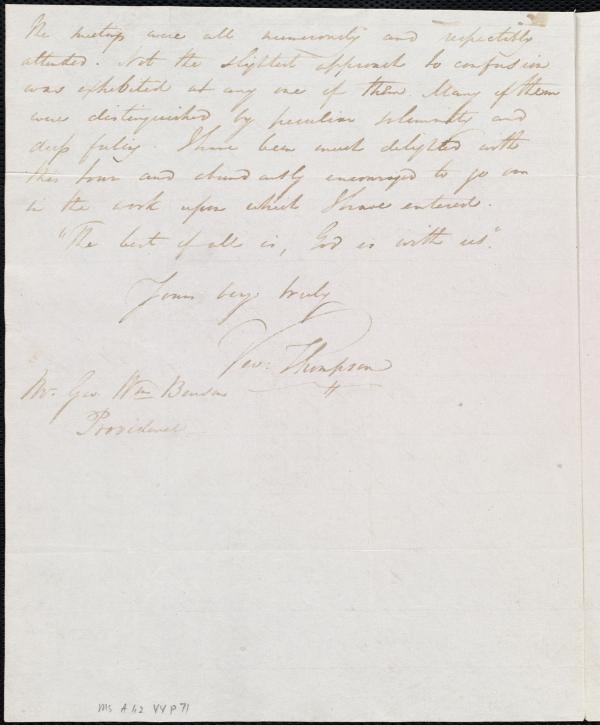 The meetings were all numerously and respectably
attended. Not the slightest approach to confusion
was exhibited at any one of them. Many of them
were distinguished by peculiar solemnity and
deep feeling. I have been much delighted with
this tour and abundantly encouraged to go on
in the work upon which I have entered.
"The best of all is, God is with us".
Yours very truly
Geo: Thompson
Mr. Geo Wm Benson
Providence
Ms A 1.2 V4 p 71